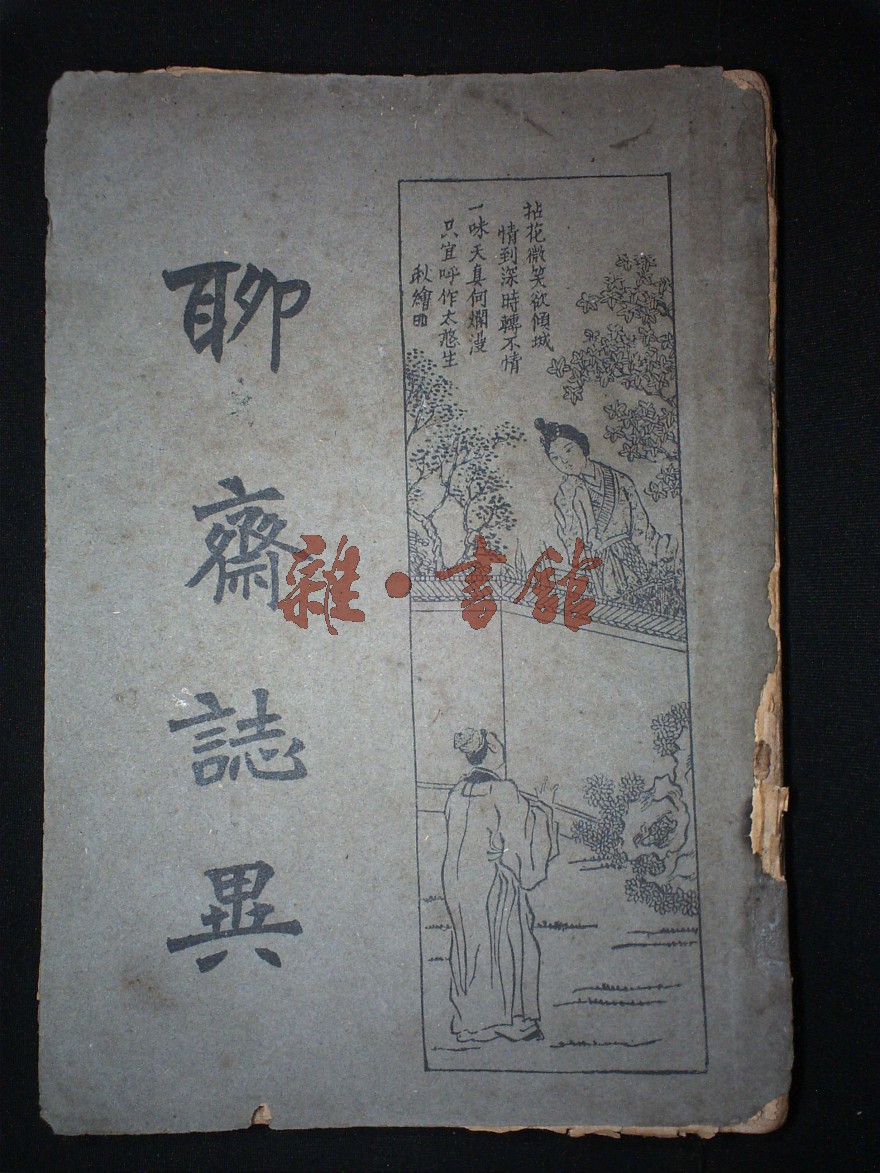 聊齋誌異
拈花微笑欲傾城
情到深時轉不情
一味天真何爛漫
只宜呼作太憨生
秋繪
雜·書館